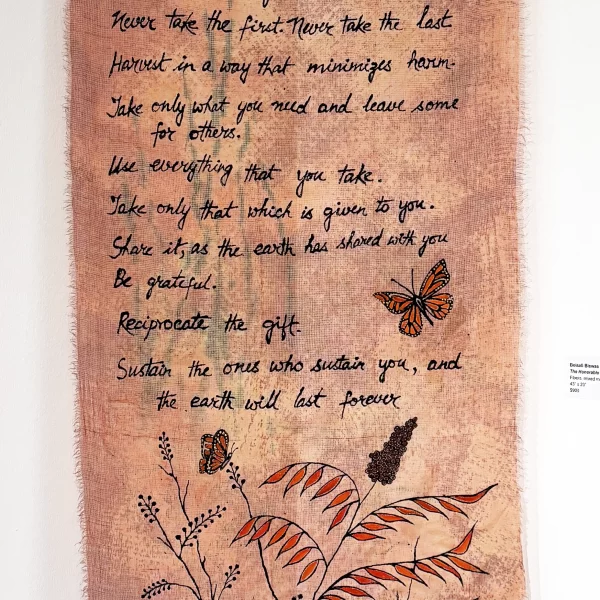 Never take the first. Never take the last
Harvest in a way that minimizes harm.
Take only what you need and leave some
for others.
Use everything that you take.
Take only that which is given to you.
Share it, as the earth has shared with you
Be grateful.
Reciprocate the gift.
Sustain the ones who sustain you, and
the earth will last forever
The Honorable